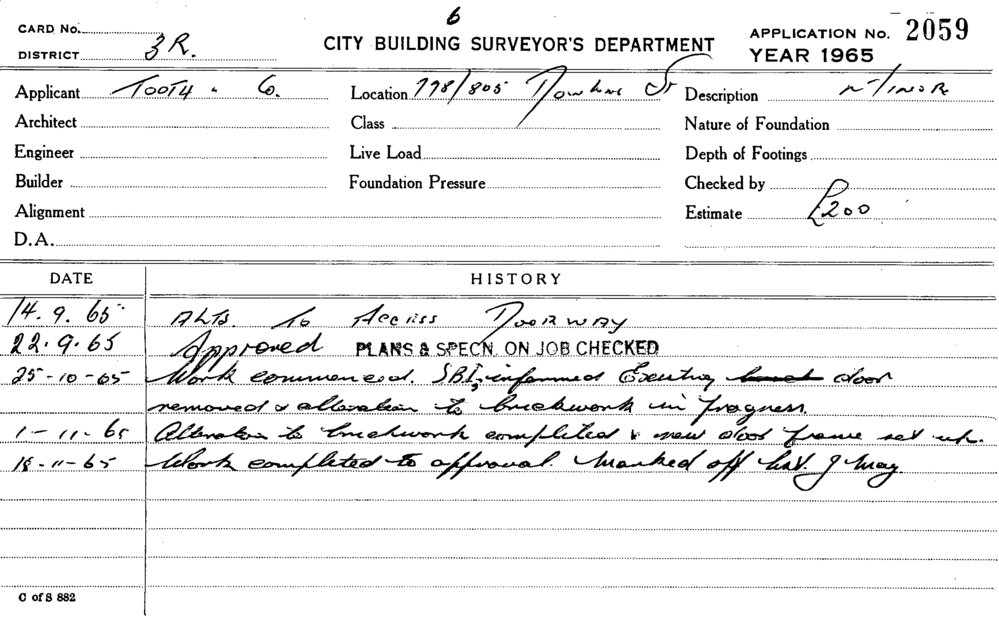 6
CARD No.
DISTRICT 3R.
CITY BUILDING SURVEYOR'S DEPARTMENT
APPLICATION No. 2059
YEAR 1965
Applicant TOOTH & Co. Location 798/805 Dowling St Description MINOR
Architect Class Nature of Foundation
Engineer Live Load Depth of Footings
Builder Foundation Pressure Checked by
Alignment Estimate £200
D.A.
DATE HISTORY
14.9.65 ALTS. To Access DOORWAY
22.9.65 Approved PLANS & SPECN. ON JOB CHECKED
25-10-65 Work commenced. S.B.I. informed Existing door
removed & alteration to brickwork in progress.
1-11-65 Alteration to brickwork completed & new door frame set up.
18-11-65 Work completed to approval. Marked off J May
C of S 882